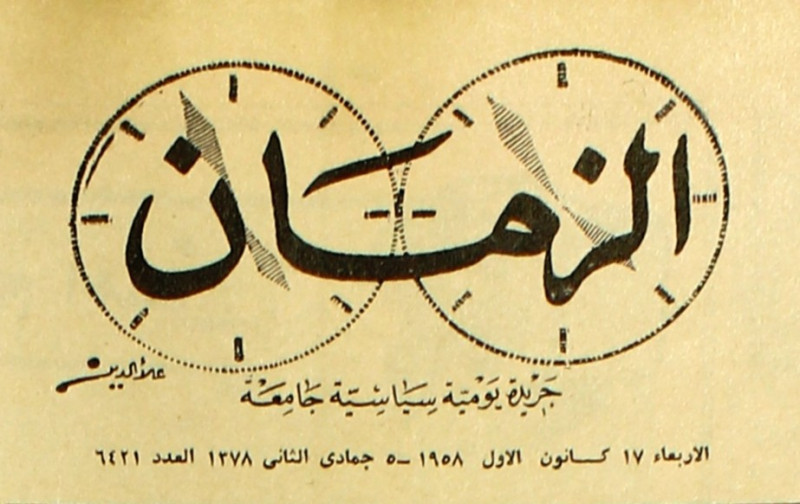 الزمان
علاءالدين
جريدة يومية سياسية جامعة
الاربعاء ١٧ كانون الاول ١٩٥٨ -٥ جمادى الثانى ١٣٧٨ العدد ٦٤٢١